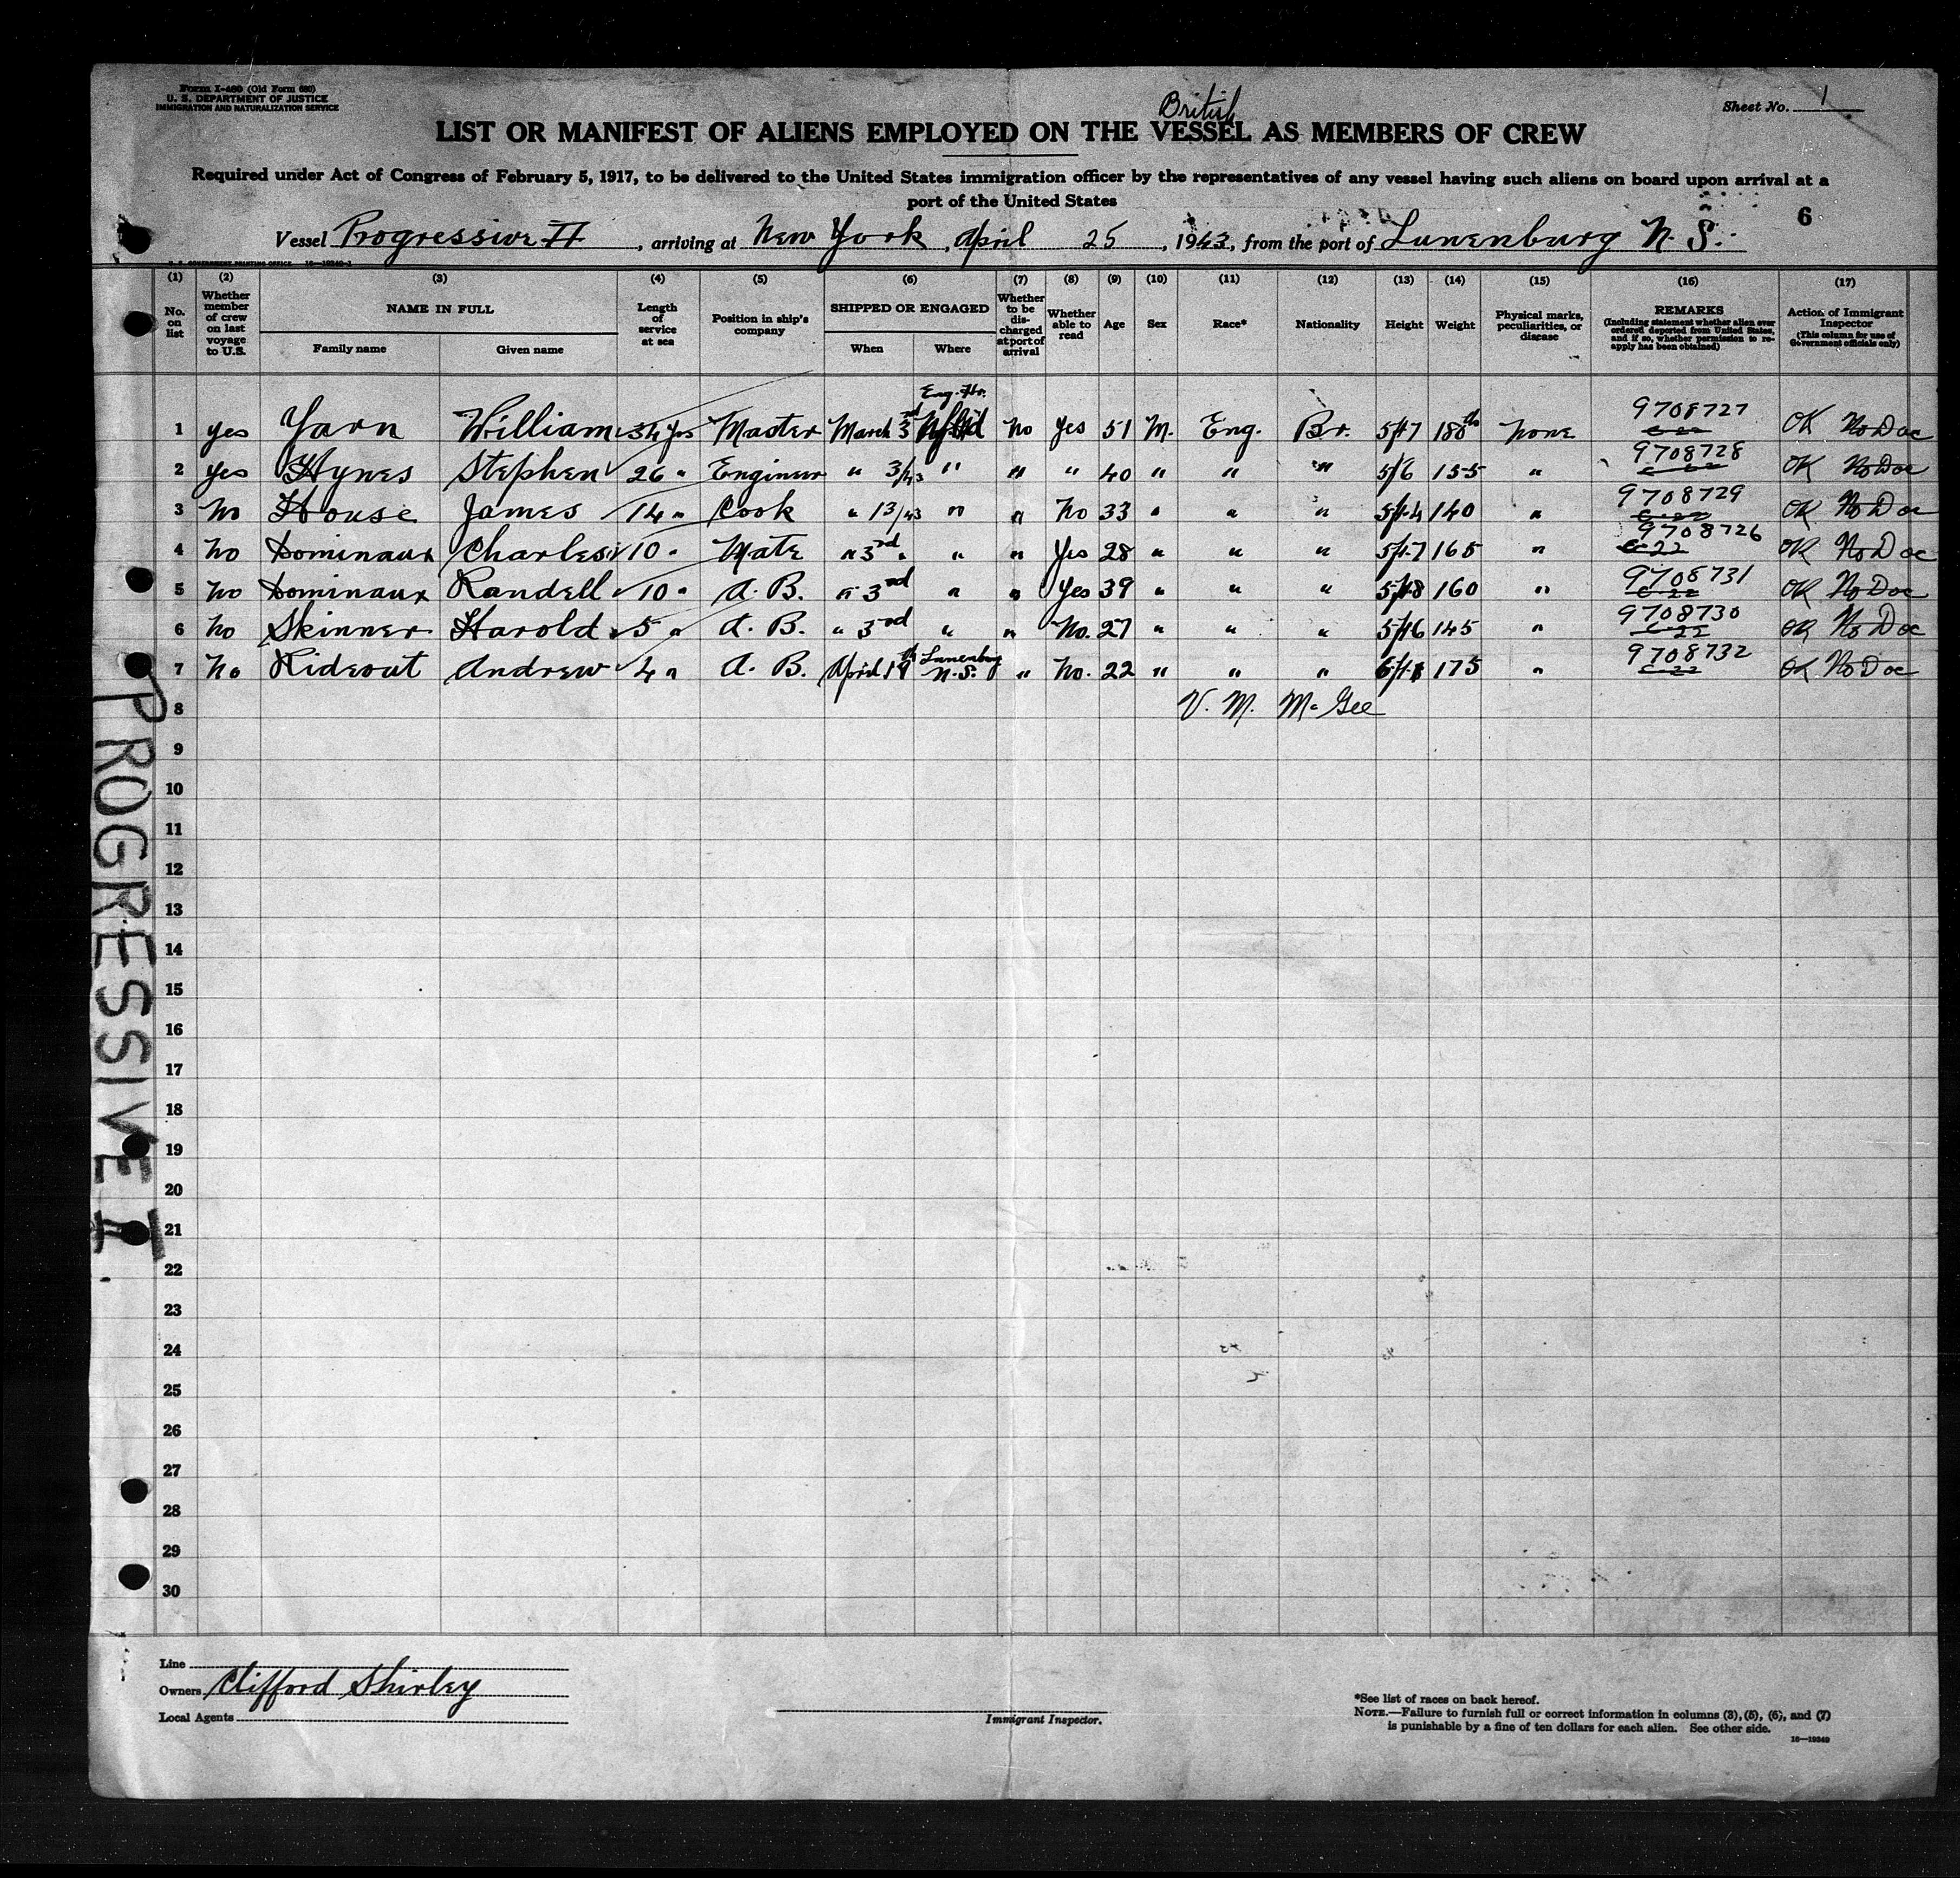 Form I-480 (Old Form 680)
U. S. DEPARTMENT OF JUSTICE
IMMIGRATION AND NATURALIZATION SERVICE
Sheet No. 1
British
LIST OR MANIFEST OF ALIENS EMPLOYED ON THE VESSEL AS MEMBERS OF CREW
Required under Act of Congress of February 5, 1917, to be delivered to the United States immigration officer by the representatives of any vessel having such aliens on board upon arrival at a
port of the United States
6
Vessel Progressive II, arriving at New York, April 25, 1943, from the port of Lunenburg N. S.
U. S. GOVERNMENT PRINTING OFFICE 16—19349-1
(1) (2) (3) (4) (5) (6) (7) (8) (9) (10) (11) (12) (13) (14) (15) (16) (17)
No. on list
Whether member of crew on last voyage to U.S.
NAME IN FULL
Family name
Given name
Length of service at sea
Position in ship's company
SHIPPED OR ENGAGED
When
Where
Whether to be discharged at port of arrival
Whether able to read
Age
Sex
Race*
Nationality
Height
Weight
Physical marks, peculiarities, or disease
REMARKS
(Including statement whether alien ever ordered deported from United States, and if so, whether permission to reapply has been obtained)
Action of Immigrant Inspector
(This column for use of Government officials only)
1 yes Yarn William 34 yrs Master March 3rd Nfld No Yes 51 M. Eng. Br. 5/7 188 none 9708727 OK No Doc
2 yes Hynes Stephen 26 " Engineer " 3/43 " " " 40 " " " 5/6 155 " 9708728 OK No Doc
3 No House James 14 " Cook " 13/43 " " No 33 " " " 5/4 140 " 9708729 OK No Doc
4 No Dominaux Charles 10 " Mate " 3rd " " " Yes 28 " " " 5/7 165 " 9708726 C-22 OK No Doc
5 No Dominaux Randell 10 " A. B. " 3rd " " Yes 39 " " " 5/8 160 " 9708731 C-22 OK No Doc
6 No Skinner Harold 5 " A. B. " 3rd " " No. 27 " " " 5/6 145 " 9708730 C-22 OK No Doc
7 No Rideout Andrew 4 " A. B. April 19th Lunenburg N.S. " No. 22 " " " 6/1 175 " 9708732 C-22 OK No Doc
8 V. M. McGee
9
10
11
12
13
14
15
16
17
18
19
20
21
22
23
24
25
26
27
28
29
30
PROGRESSIVE II
Line
Owners Clifford Shirley
Local Agents
Immigrant Inspector.
*See list of races on back hereof.
NOTE.—Failure to furnish full or correct information in columns (3), (5), (6), and (7)
is punishable by a fine of ten dollars for each alien. See other side.
16—19349